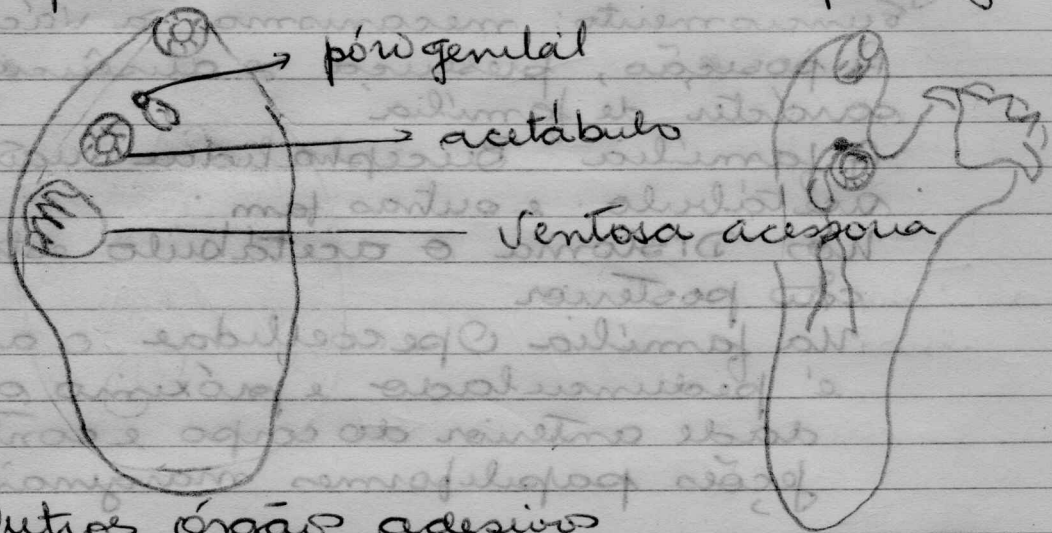 póro genital
acetábulo
Ventosa acessória
Outros órgãos adesivos